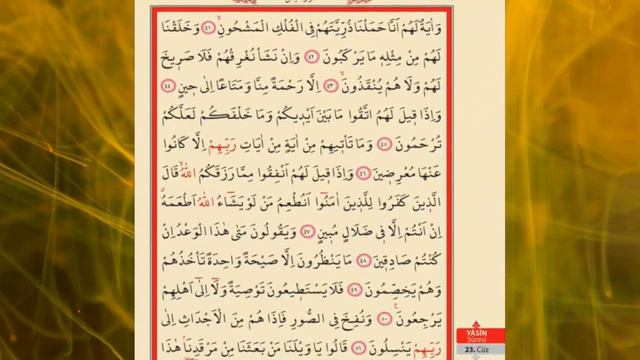 وَاٰيَةٌ لَهُمْ اَنَّا حَمَلْنَا ذُرِّيَّتَهُمْ فِى الْفُلْكِ الْمَشْحُونِۙ ﴿٤١﴾ وَخَلَقْنَا
لَهُمْ مِنْ مِثْلِهٖ مَا يَرْكَبُونَ ﴿٤٢﴾ وَاِنْ نَشَأْ نُغْرِقْهُمْ فَلَا صَرٖيخَ
لَهُمْ وَلَا هُمْ يُنْقَذُونَۙ ﴿٤٣﴾ اِلَّا رَحْمَةً مِنَّا وَمَتَاعًا اِلٰى حٖينٍ ﴿٤٤﴾
وَاِذَا قٖيلَ لَهُمُ اتَّقُوا مَا بَيْنَ اَيْدٖيكُمْ وَمَا خَلْفَكُمْ لَعَلَّكُمْ
تُرْحَمُونَ ﴿٤٥﴾ وَمَا تَأْتٖيهِمْ مِنْ اٰيَةٍ مِنْ اٰيَاتِ رَبِّهِمْ اِلَّا كَانُوا
عَنْهَا مُعْرِضٖينَ ﴿٤٦﴾ وَاِذَا قٖيلَ لَهُمْ اَنْفِقُوا مِمَّا رَزَقَكُمُ اللّٰهُۙ قَالَ
الَّذٖينَ كَفَرُوا لِلَّذٖينَ اٰمَنُٓوا اَنُطْعِمُ مَنْ لَوْ يَشَٓاءُ اللّٰهُ اَطْعَمَهُۗ
اِنْ اَنْتُمْ اِلَّا فٖى ضَلَالٍ مُبٖينٍ ﴿٤٧﴾ وَيَقُولُونَ مَتٰى هٰذَا الْوَعْدُ اِنْ
كُنْتُمْ صَادِقٖينَ ﴿٤٨﴾ مَا يَنْظُرُونَ اِلَّا صَيْحَةً وَاحِدَةً تَأْخُذُهُمْ
وَهُمْ يَخِصِّمُونَ ﴿٤٩﴾ فَلَا يَسْتَطٖيعُونَ تَوْصِيَةً وَلَٓا اِلٰٓى اَهْلِهِمْ
يَرْجِعُونَۚ ﴿٥٠﴾ وَنُفِخَ فِى الصُّورِ فَاِذَا هُمْ مِنَ الْاَجْدَاثِ اِلٰى
رَبِّهِمْ يَنْسِلُونَ ﴿٥١﴾ قَالُوا يَا وَيْلَنَا مَنْ بَعَثَنَا مِنْ مَرْقَدِنَاۢ هٰذَا
YÂSÎN
Sûresi
23. Cüz